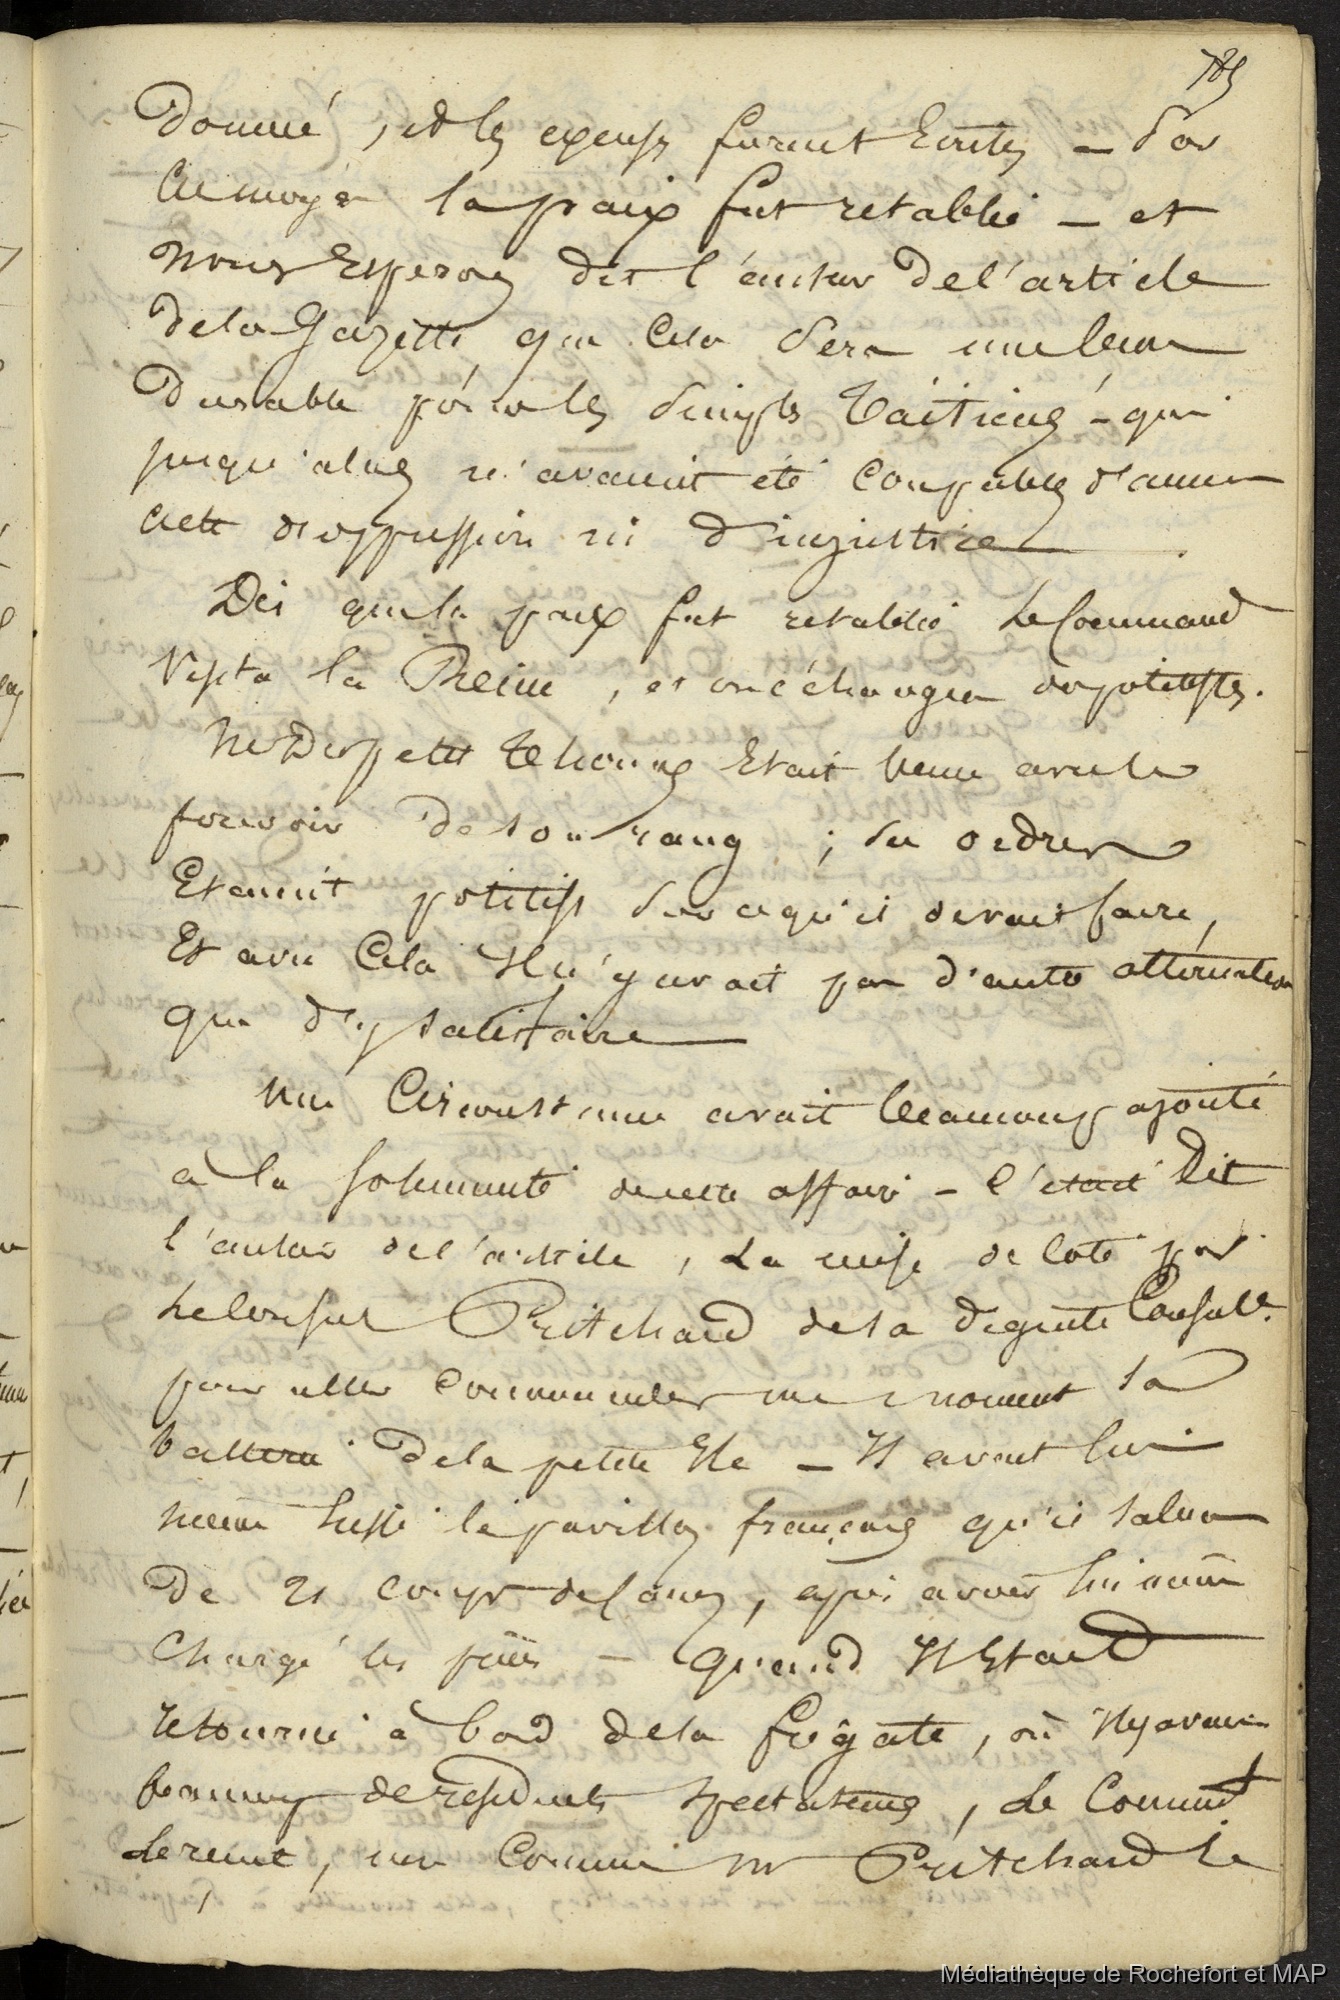 785
Donné, et les excuses furent Ecrites – Par
Ce moyen la paix fut retablie – et
Nous Esperons dit l'auteur de l'article
de la Gazette que Cela Sera une lecon
Durable pour les Simples Taïtiens – qui
jusqu'alors n'avaient été Coupables d'aucun
acte d'oppression ni d'injustice.
Dès que la paix fut retablie Le Command
Visita la Reine, et on échangea
Mr Dupetit Thouars Etait Venu avec le
pouvoir de son rang ; Ses ordres
Etaient positifs Sur ce qu'il devait faire,
Et avec Cela Il n'y avait pas d'autre alternative
que d'y satisfaire
Une Circonstance avait beaucoup ajouté
à la Solennité de cette affaire – C'était Dit
l'auteur de l'article, La mise de Coté par
Le Consul Pritchard de sa dignité Consul.re
pour aller Commander un moment la
batterie de la petite Ile – Il avait lui
meme hissé le pavillon français qu'il salua
De 21 Coups de Canon, après avoir lui meme
Chargé les pièces – Quand Il Etait
retourné à bord de la fregate, où Il y avait
beaucoup de residents Spectateurs, Le Commdt
Le reçut, non Comme Mr Pritchard Le
Médiathèque de Rochefort et MAP